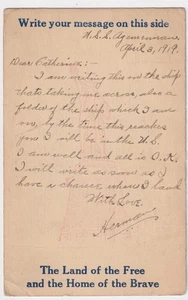 Write your message on this side
U.S.S. Agamemnon
April 3, 1919.
Dear Catherine:-
I am writing this on the ship
thats taking me across, also a
folder of the ship which I am
on, by the time this reaches
you I will be in the U.S.
I am well and all is O.K.
I will write as soon as I
have a chance when I land.
With Love.
Herman
The Land of the Free
and the Home of the Brave